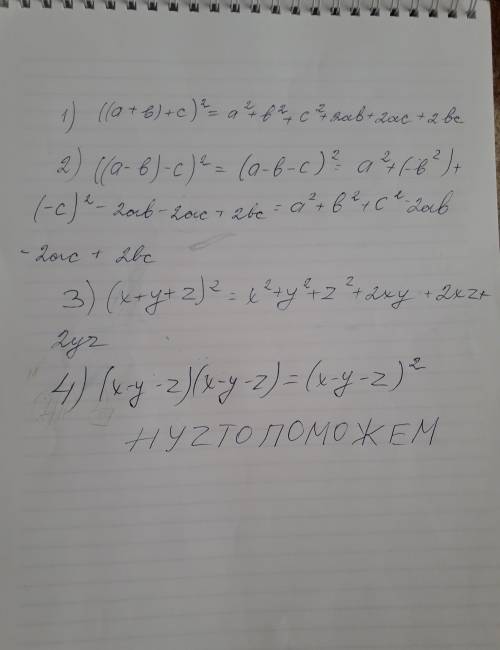 1) ((a+b)+c)²= a²+b²+c²+2ab+2ac+2bc
2) ((a-b)-c)²= (a-b-c)²= a²+(-b²)+
(-c)²-2ab-2ac+2bc=a²+b²+c²-2ab
-2ac+ 2bc
3) (x+y+z)²=x²+y²+z²+2xy+2xz+
2yz
4) (x-y-z)(x-y-z)=(x-y-z)²